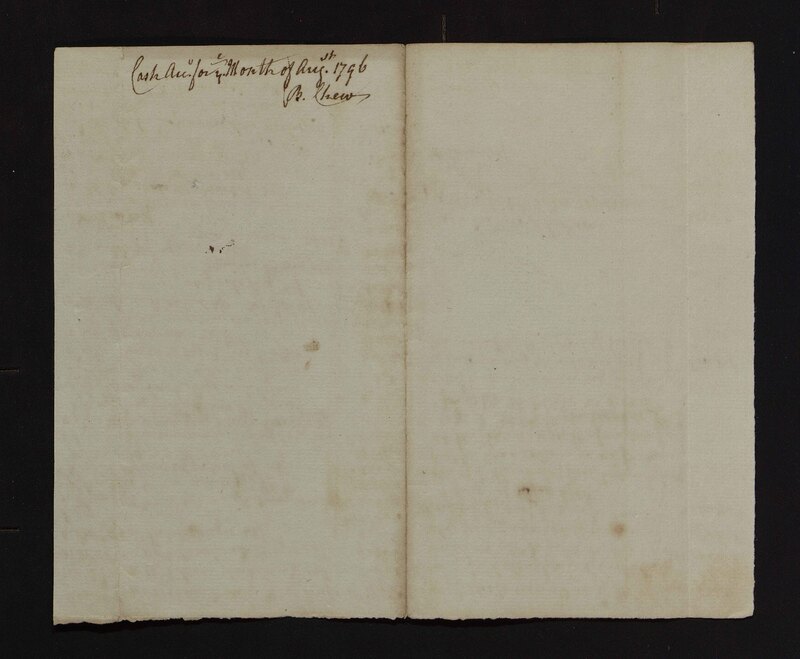 Cash Acct. for ye. Month of Augst. 1796
B. Chew